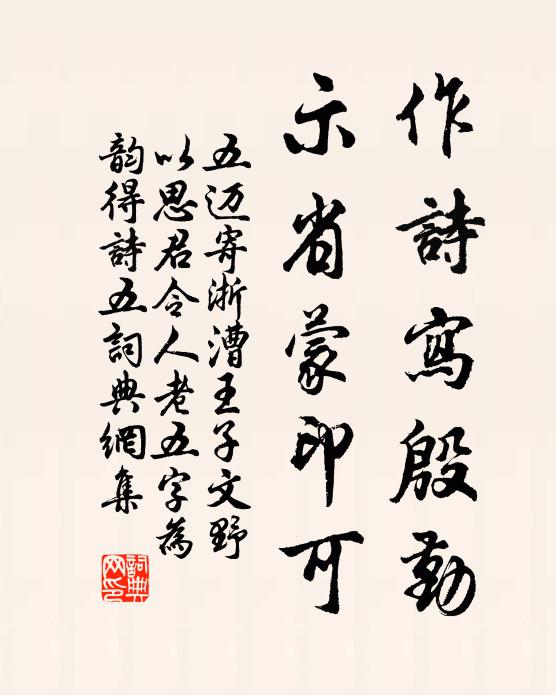 作詩寫殷勤
示省蒙印可
五迈寄浙漕王子文野
以思君令人老五字為
韵得詩五詞典網集
詞典网印